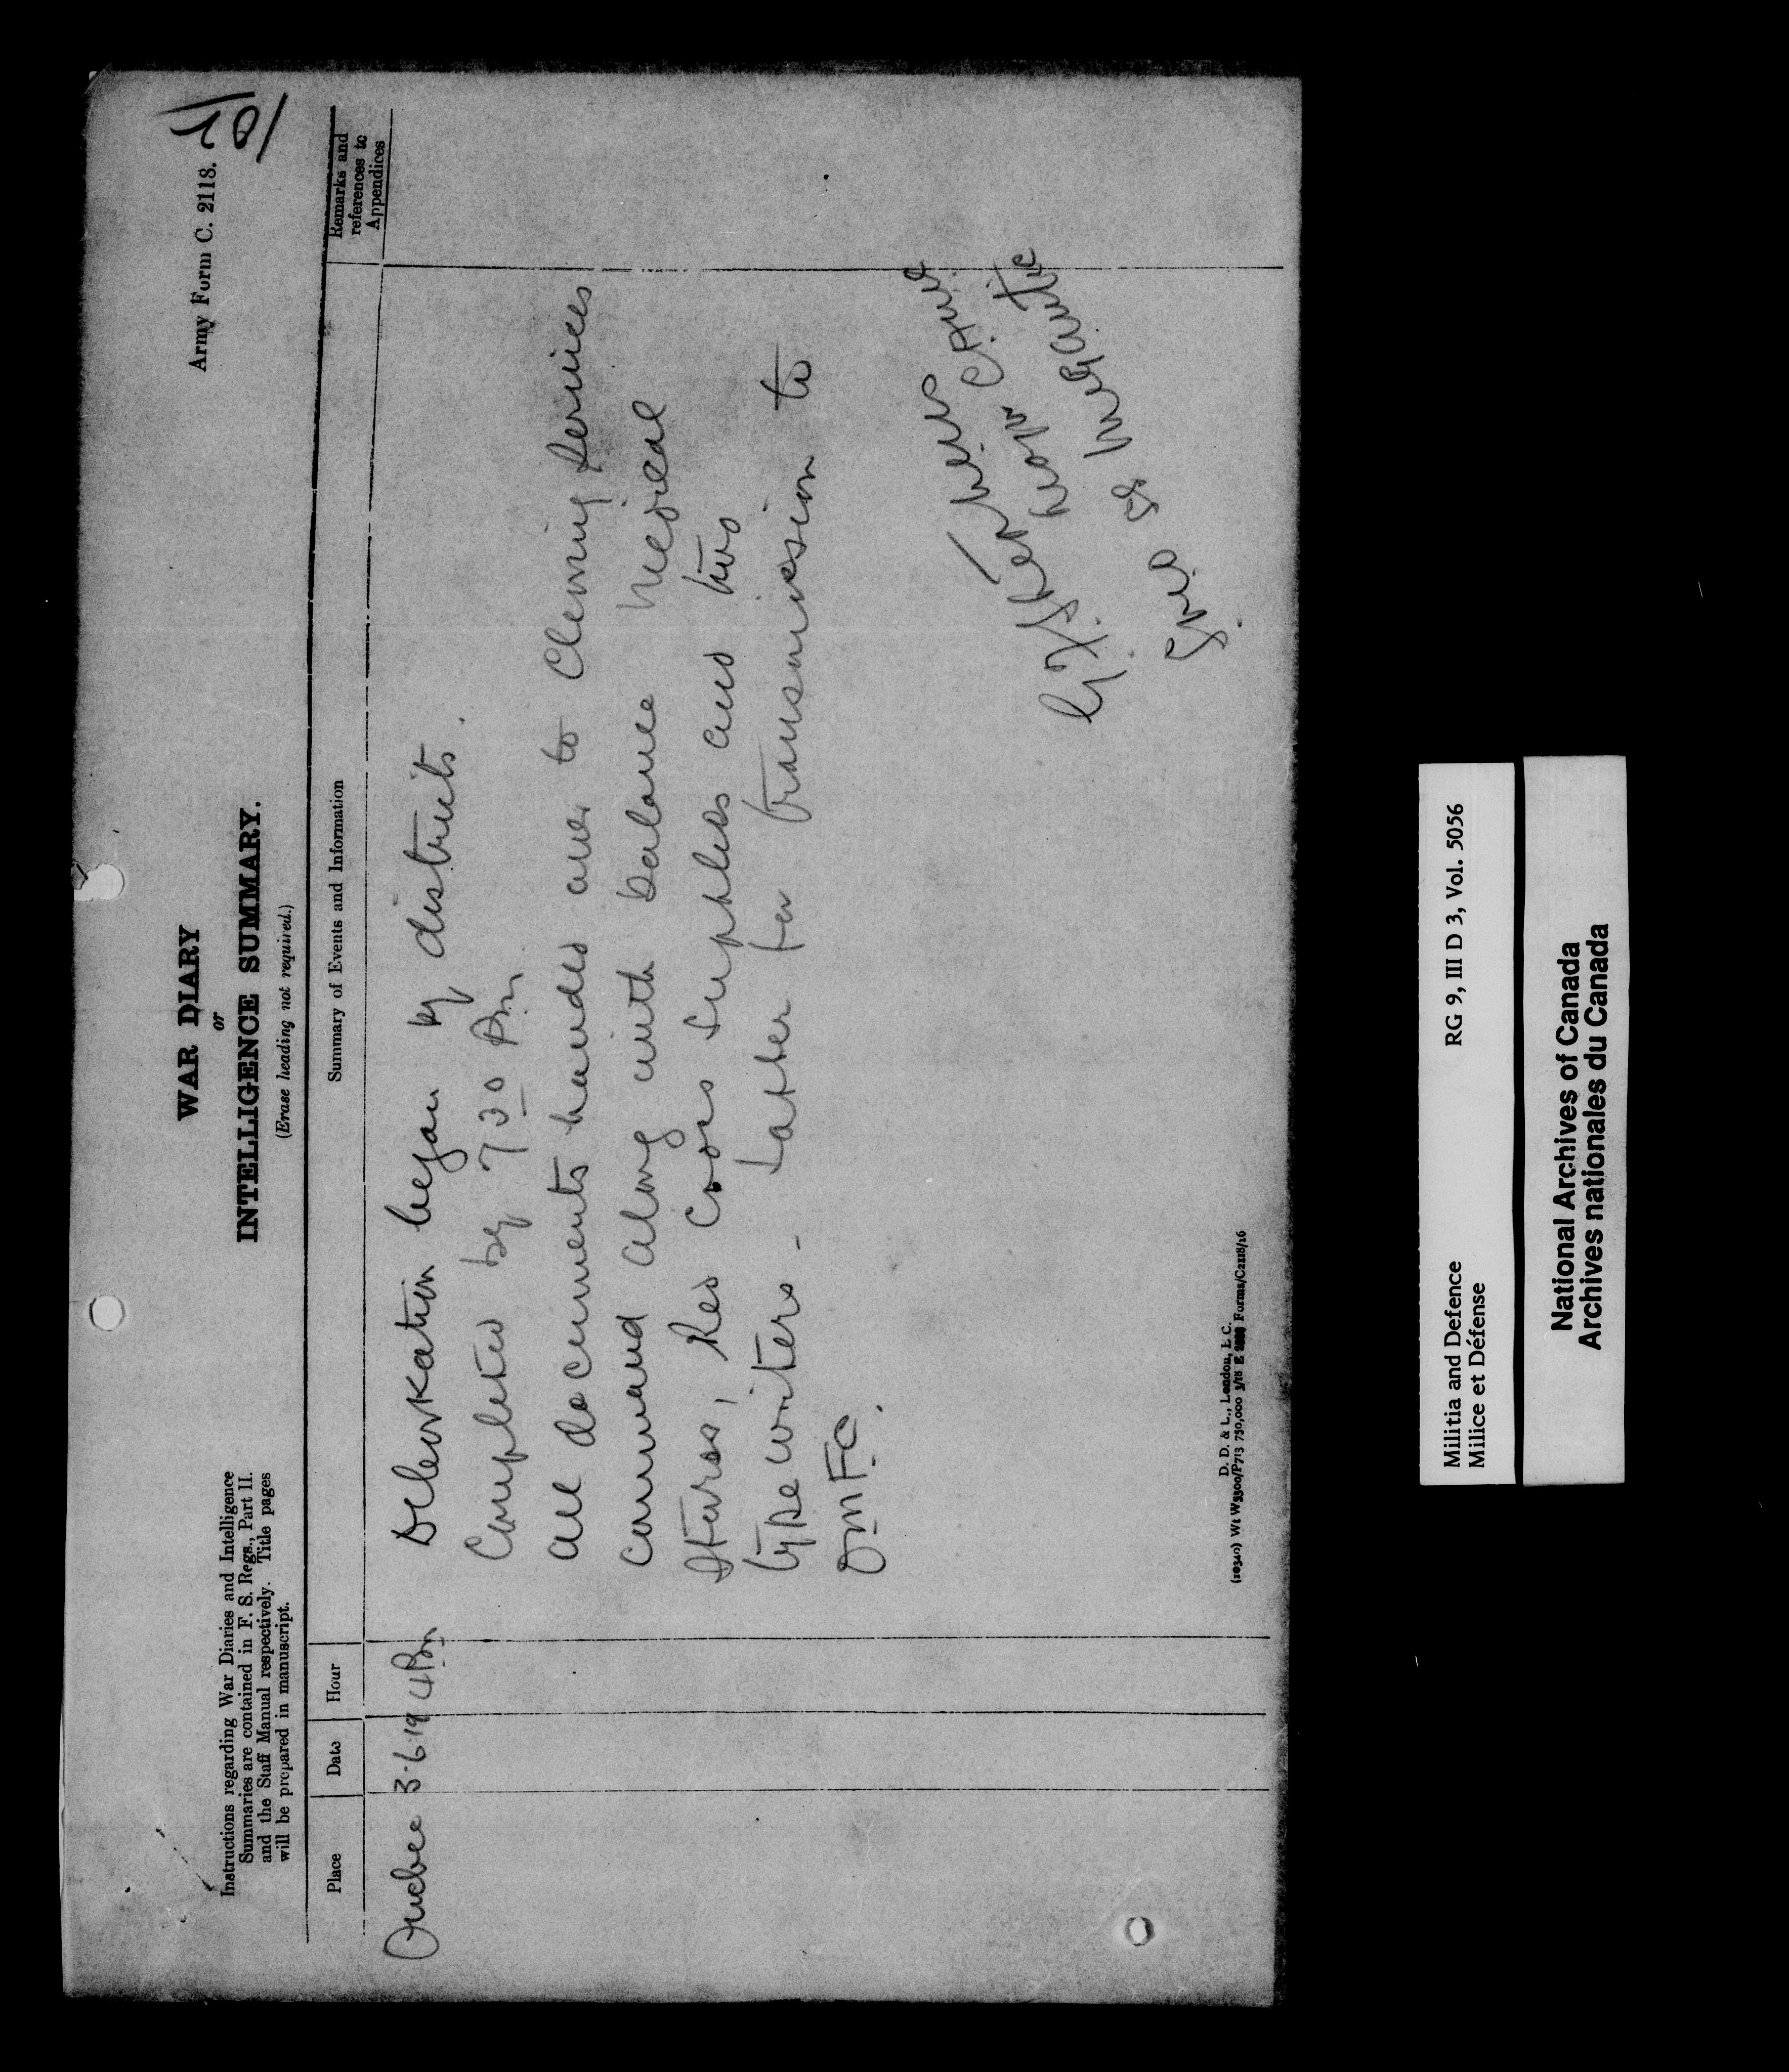 Army Form C. 2118.
10/
WAR DIARY
or
INTELLIGENCE SUMMARY.
(Erase heading not required.)
Instructions regarding War Diaries and Intelligence
Summaries are contained in F. S. Regs., Part II.
and the Staff Manual respectively. Title pages
will be prepared in manuscript.
Place
Date
Hour
Summary of Events and Information
Remarks and
references to
Appendices
Quebec 3-6-19 4 Pm
Debarkation began by districts.
Completed by 7 30 Pm
all documents handed over to Clearing Services
command along with balance medical
stores, Red Cross supplies and two
typewriters - latter for transmission to
OMFC.
CAMC
S.S. Megantic
D. D. & L., London, E.C.
(10340) Wt W5300/P713 750,000 3/18 E Forms/C2118/16
Militia and Defence
Milice et Défense
RG 9, III D 3, Vol. 5056
National Archives of Canada
Archives nationales du Canada